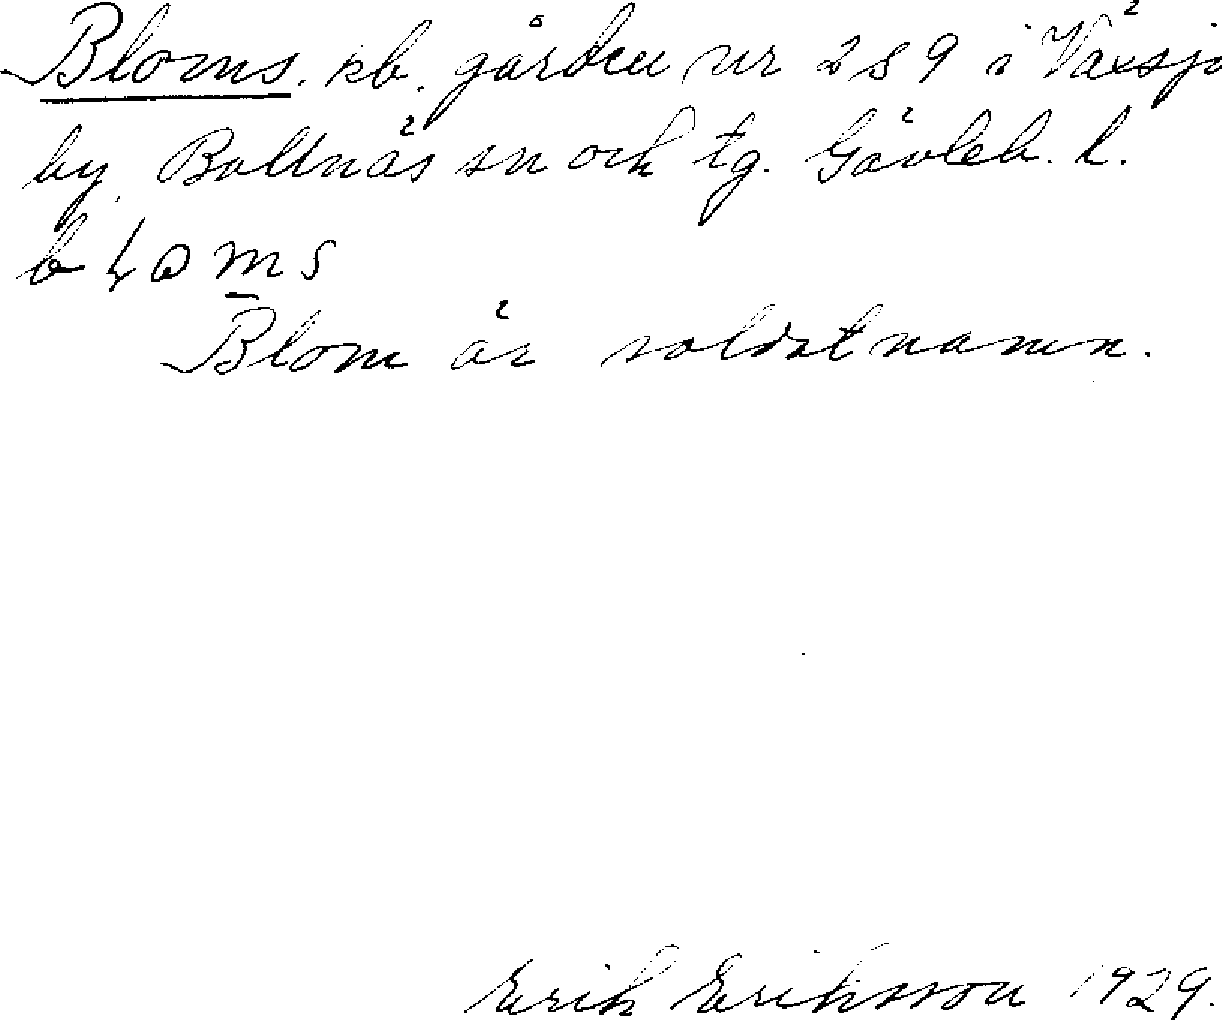 Bloms. kb. gården nr 289 i Växsjö
by, Bollnäs sn och tg. Gävleb. l.
b ɬ o m̲ s
Blom är soldatnamn.
Erik Eriksson 1929.